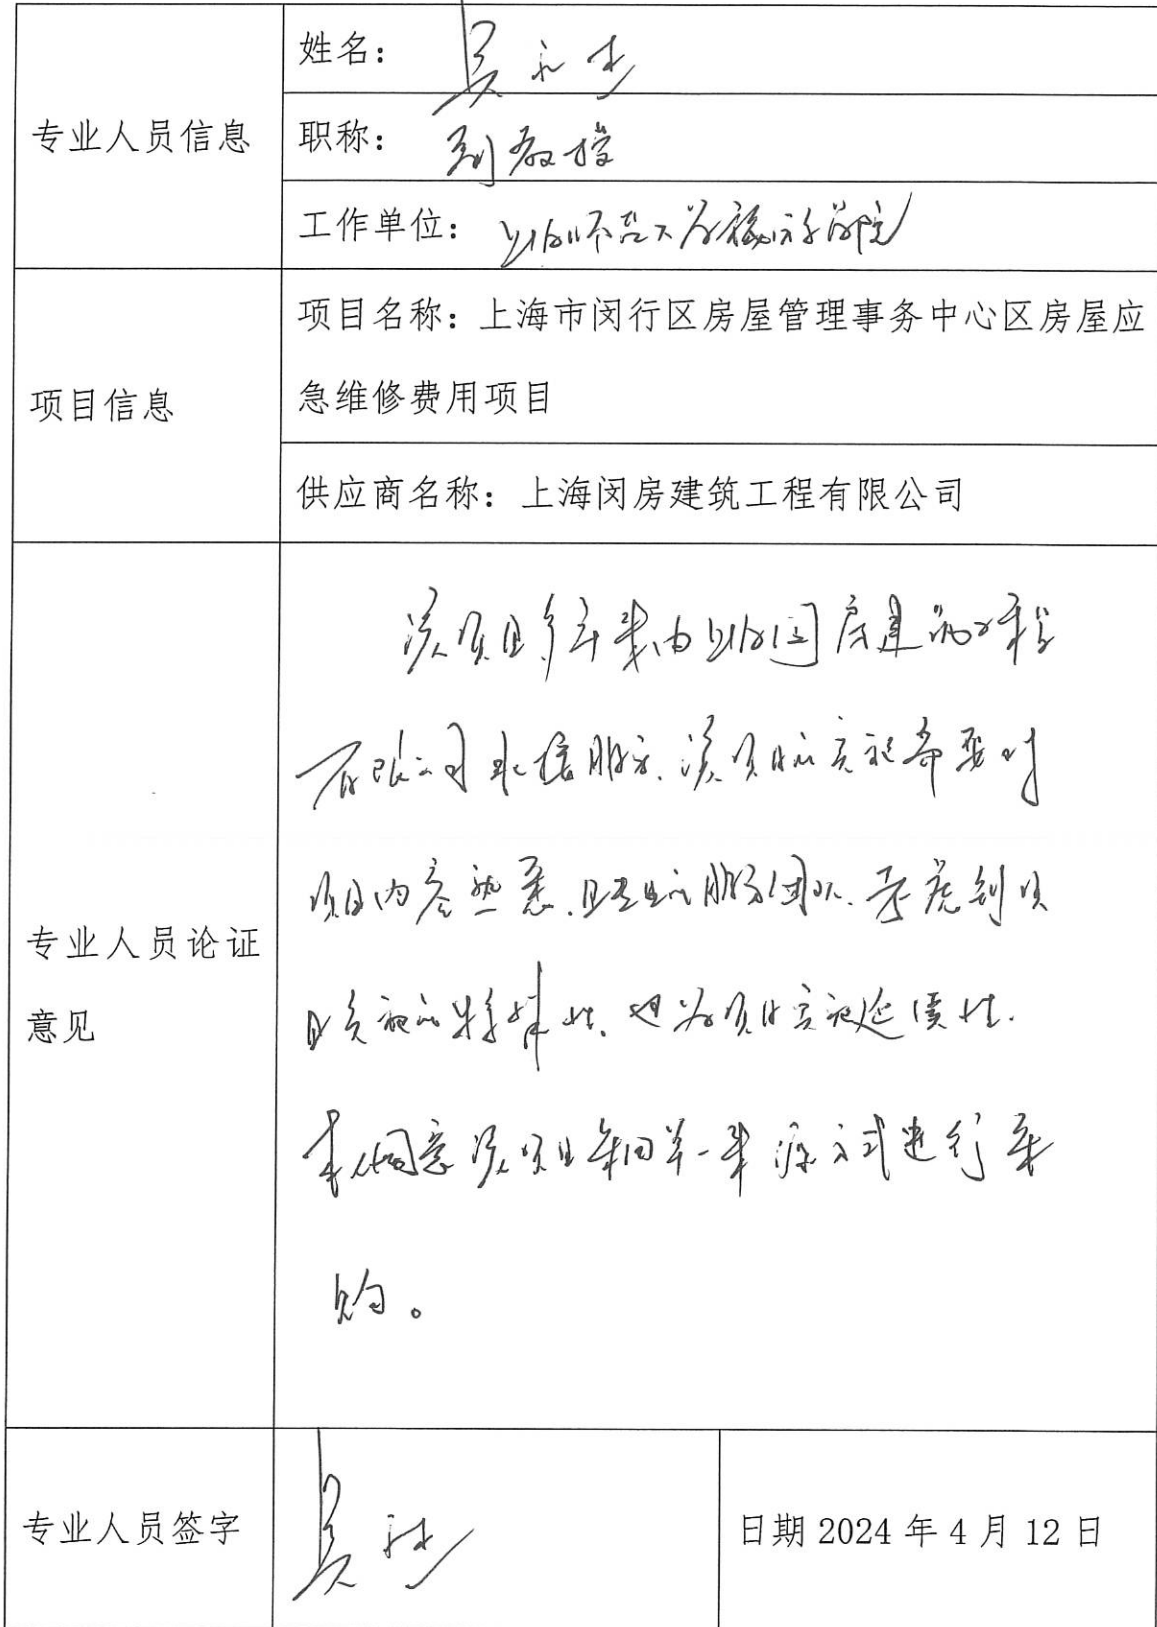 专业人员信息
姓名：吴
职称：副教授
工作单位：上海师范大学 学院
项目信息
项目名称：上海市闵行区房屋管理事务中心区房屋应
急维修费用项目
供应商名称：上海闵房建筑工程有限公司
专业人员论证
意见
该项目多年来由上海闵房建筑工程
有限公司承接服务，该项目的实施需要对
项目内容熟悉，且专业的服务团队，考虑到项
目实施的特殊性，也为项目实施延续性，
本人同意该项目采用单一来源方式进行采
购。
专业人员签字
吴
日期 2024 年 4 月 12 日